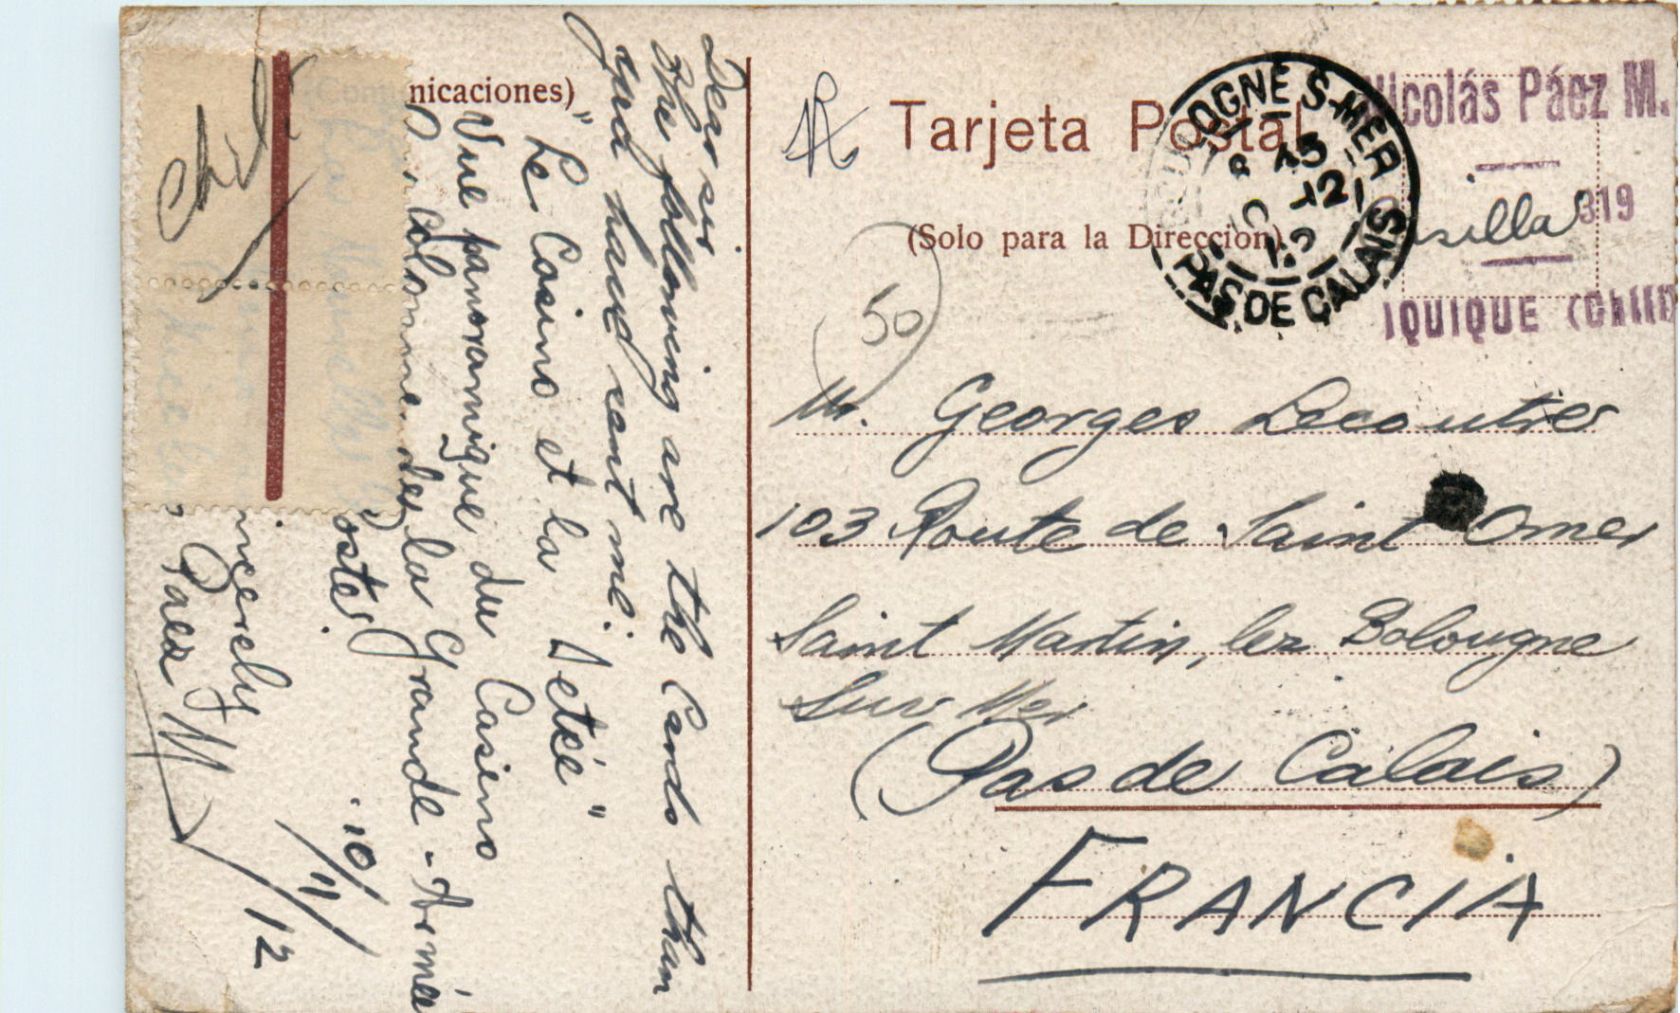 (Comunicaciones)
Chile
Dear sir
the following are the Cards than
you have sent me:
"Le Casino et la Jetée"
Vue panoramique du Casino
Colonne de la Grande-Armée
oster.
incerely
Paez M
10/11/12
Tarjeta Postal
(Solo para la Dirección)
BOULOGNE S-MER
15
12
12
PAS DE CALAIS
Nicolás Páez M.
Casilla 319
IQUIQUE (Chili)
50
Mr. Georges Lecoutre
103 Route de Saint Omer
Saint Martin, lez Bolougne
Sur Mer
(Pas de Calais)
FRANCIA